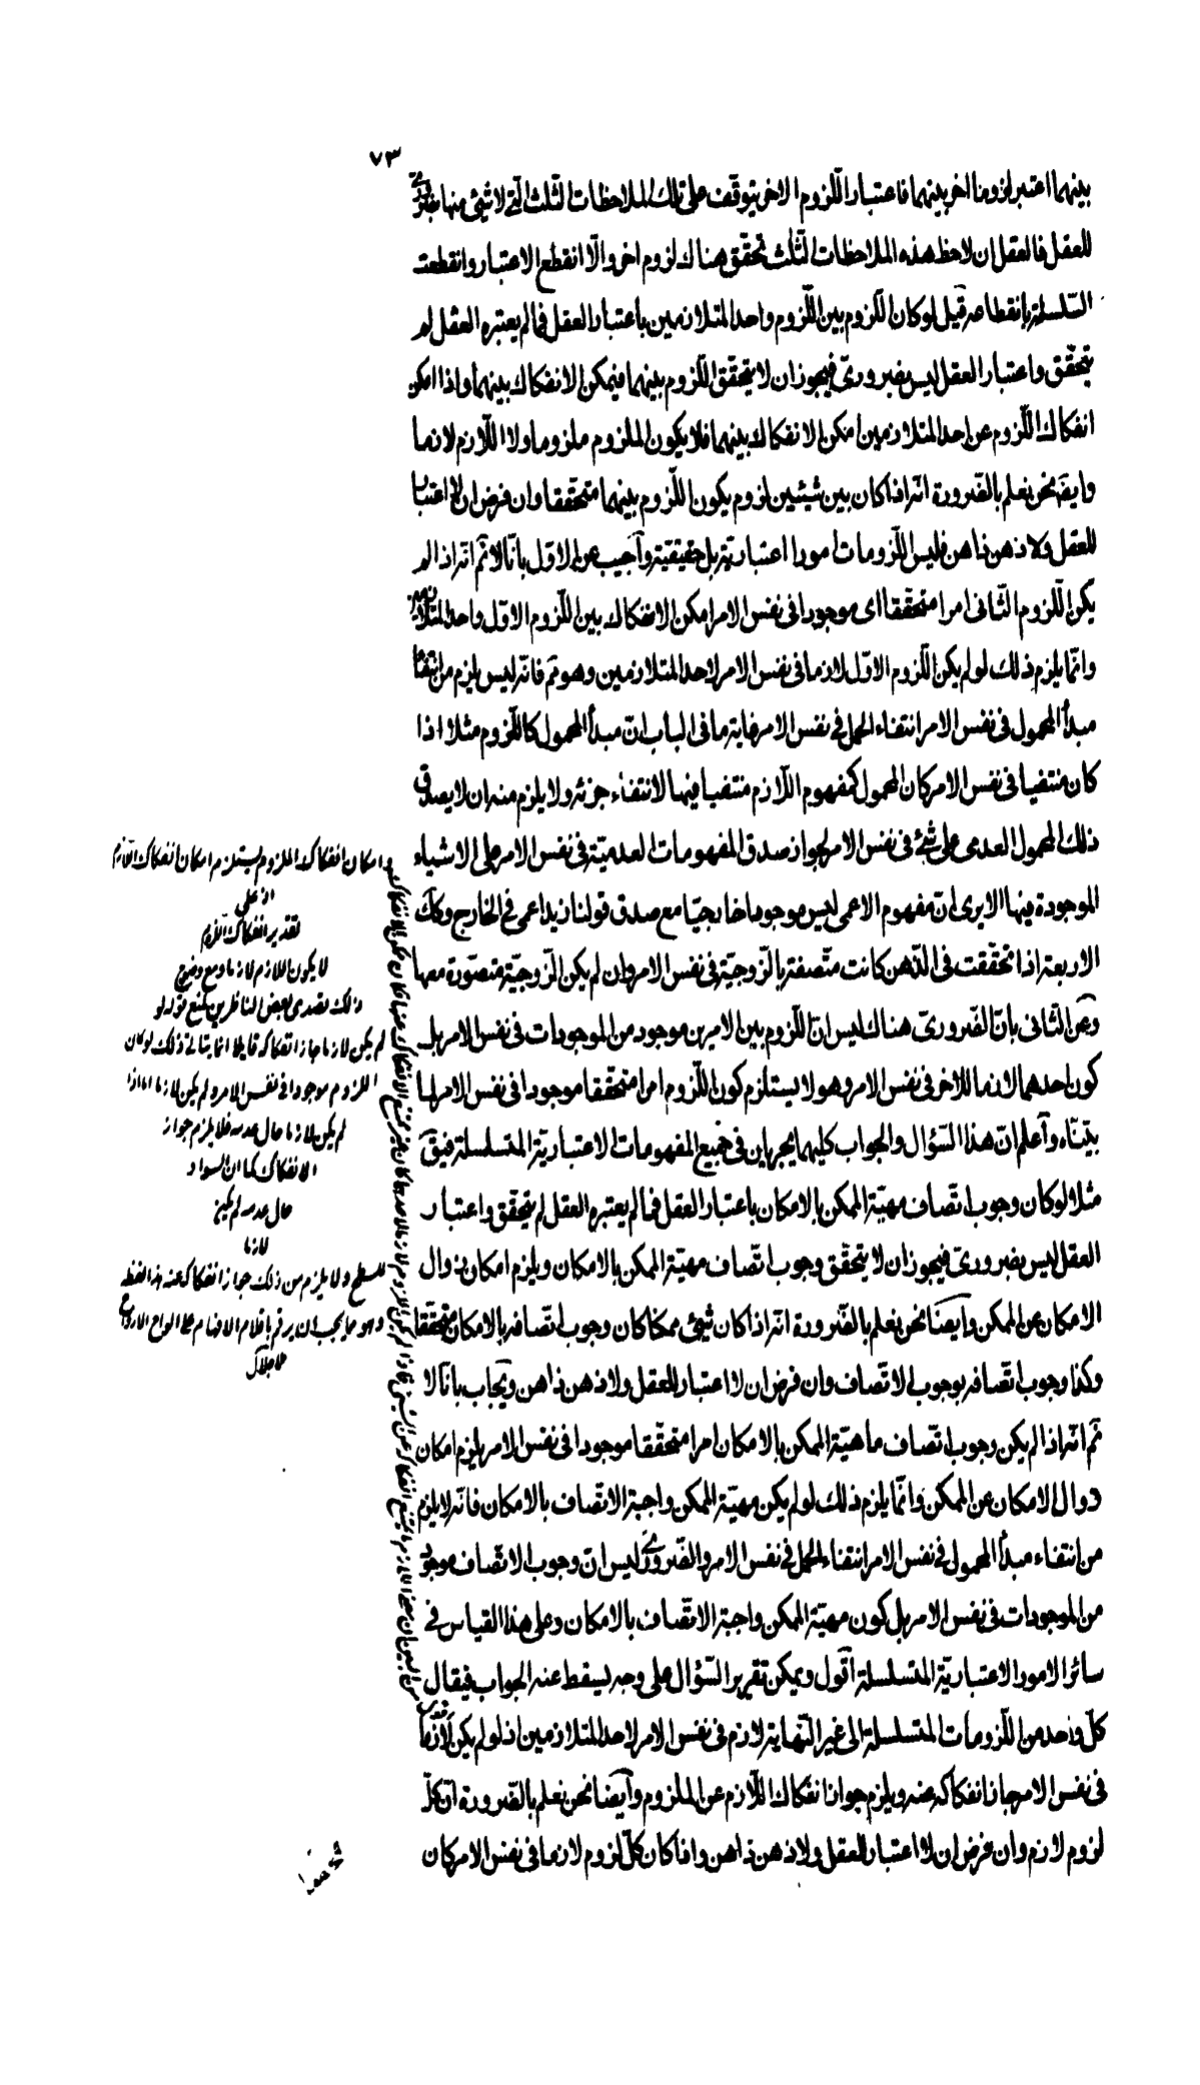 ٧٣
بينهما اعتبر لزوما اخر بينهما فاعتبار اللّزوم الاخر يتوقّف على تلك الملاحظات الثّلث الّتى لا شئ منها بضرورىّ
للعقل فالعقل ان لاحظ هذه الملاحظات الثّلث تحقّق هناك لزوم اخر والّا انقطع الاعتبار وانقطعت
السّلسلة بانقطاعه قيل لو كان اللّزوم بين اللّزوم واحد المتلازمين باعتبار العقل فما لم يعتبره العقل لم
يتحقّق واعتبار العقل ليس بضرورىّ فيجوز ان لا يتحقّق اللّزوم بينهما فيمكن الانفكاك بينهما واذا امكن
انفكاك اللّزوم عن احد المتلازمين امكن الانفكاك بينهما فلا يكون الملزوم ملزوما ولا اللّازم لازما
وايضا نحن نعلم بالضّرورة انّه اذا كان بين شيئين لزوم يكون اللّزوم بينهما متحقّقا وان فرض ان لا اعتبار
للعقل ولا ذهن ذاهن فليس اللّزومات امورا اعتباريّة بل حقيقيّة وأجيب عن الاوّل بانّا لا نم انّه اذا لم
يكن اللّزوم الثّانى امرا متحقّقا اى موجودا فى نفس الامر امكن الانفكاك بين اللّزوم الاوّل واحد المتلازمين
وانّما يلزم ذلك لو لم يكن اللّزوم الاوّل لازما فى نفس الامر لاحد المتلازمين وهو تم فانّه ليس يلزم من انتفاء
مبدأ المحمول فى نفس الامر انتفاء الحمل فى نفس الامر غاية ما فى الباب انّ مبدأ المحمول كاللّزوم مثلا اذا
كان منتفيا فى نفس الامر كان المحمول كمفهوم اللّازم منتفيا فيها لانتفاء جزئه ولا يلزم منه ان لا يصدق
ذلك المحمول العدمى على شئ فى نفس الامر لجواز صدق المفهومات العدميّة فى نفس الامر على الاشياء
الموجودة فيها الا يرى انّ مفهوم الاعمى ليس موجودا خارجيّا مع صدق قولنا زيد اعمى فى الخارج وكك
الاربعة اذا تحقّقت فى الذّهن كانت متّصفة بالزّوجيّة فى نفس الامر وان لم يكن الزّوجيّة متصوّرة معها
وعن الثانى بانّ الضّرورىّ هناك ليس انّ اللّزوم بين الامرين موجود من الموجودات فى نفس الامر بل
كون احدهما لازما للاخر فى نفس الامر وهو لا يستلزم كون اللّزوم امرا متحقّقا موجودا فى نفس الامر لما
بيّنّاه وأعلم انّ هذا السّؤال والجواب كليهما يجريان فى جميع المفهومات الاعتباريّة المتسلسلة فيق
مثلا لو كان وجوب اتّصاف مهيّة الممكن بالامكان باعتبار العقل فما لم يعتبره العقل لم يتحقّق واعتبار
العقل ليس بضرورىّ فيجوز ان لا يتحقّق وجوب اتّصاف مهيّة الممكن بالامكان ويلزم امكان زوال
الامكان عن الممكن وأيضا نحن نعلم بالضّرورة انّه اذا كان شئ ممكنا كان وجوب اتّصافه بالامكان متحقّقا
وكذا وجوب اتّصافه بوجوب الاتّصاف وان فرض ان لا اعتبار للعقل ولا ذهن ذاهن ويجاب بانّا لا
نم انّه اذا لم يكن وجوب اتّصاف ماهيّة الممكن بالامكان امرا متحقّقا موجودا فى نفس الامر يلزم امكان
زوال الامكان عن الممكن وانّما يلزم ذلك لو لم يكن مهيّة الممكن واجبة الاتّصاف بالامكان فانّه لا يلزم
من انتفاء مبدأ المحمول فى نفس الامر انتفاء الحمل فى نفس الامر والضّرورىّ ليس انّ وجوب الاتّصاف موجود
من الموجودات فى نفس الامر بل كون مهيّة الممكن واجبة الاتّصاف بالامكان وعلى هذا القياس فى
سائر الامور الاعتباريّة المتسلسلة اقول ويمكن تقرير السّؤال على وجه يسقط عنه الجواب فيقال
كلّ واحد من اللّزومات المتسلسلة الى غير النّهاية لازم فى نفس الامر لاحد المتلازمين اذ لو لم يكن لازما
فى نفس الامر جاز انفكاكه عنه ويلزم جواز انفكاك اللّازم عن الملزوم وأيضا نحن نعلم بالضّرورة انّ كلّ
لزوم لازم وان فرض ان لا اعتبار للعقل ولا ذهن ذاهن واذا كان كلّ لزوم لازما فى نفس الامر كان
وامكان انفكاك الملزوم يستلزم امكان انفكاك اللّازم
اذ على
تقدير انفكاك اللّزوم
لا يكون اللازم لازما ومع وضوح
ذلك تصدى بعض الناظرين بمنع قوله لو
لم يكن لازما جاز انفكاكه قايلا انما يتأتى ذلك لو كان
اللزوم موجودا فى نفس الامر ولم يكن لازما اما اذا
لم يكن لازما حال عدمه فلا يلزم جواز
الانفكاك كما ان السواد
حال عدمه لم يكن
لازما
للسطح ولا يلزم من ذلك جواز انفكاكه عنه هذا لفظه
وهو مما يجب ان يرقم باقلام الافهام على الواح الارواح
متحققا